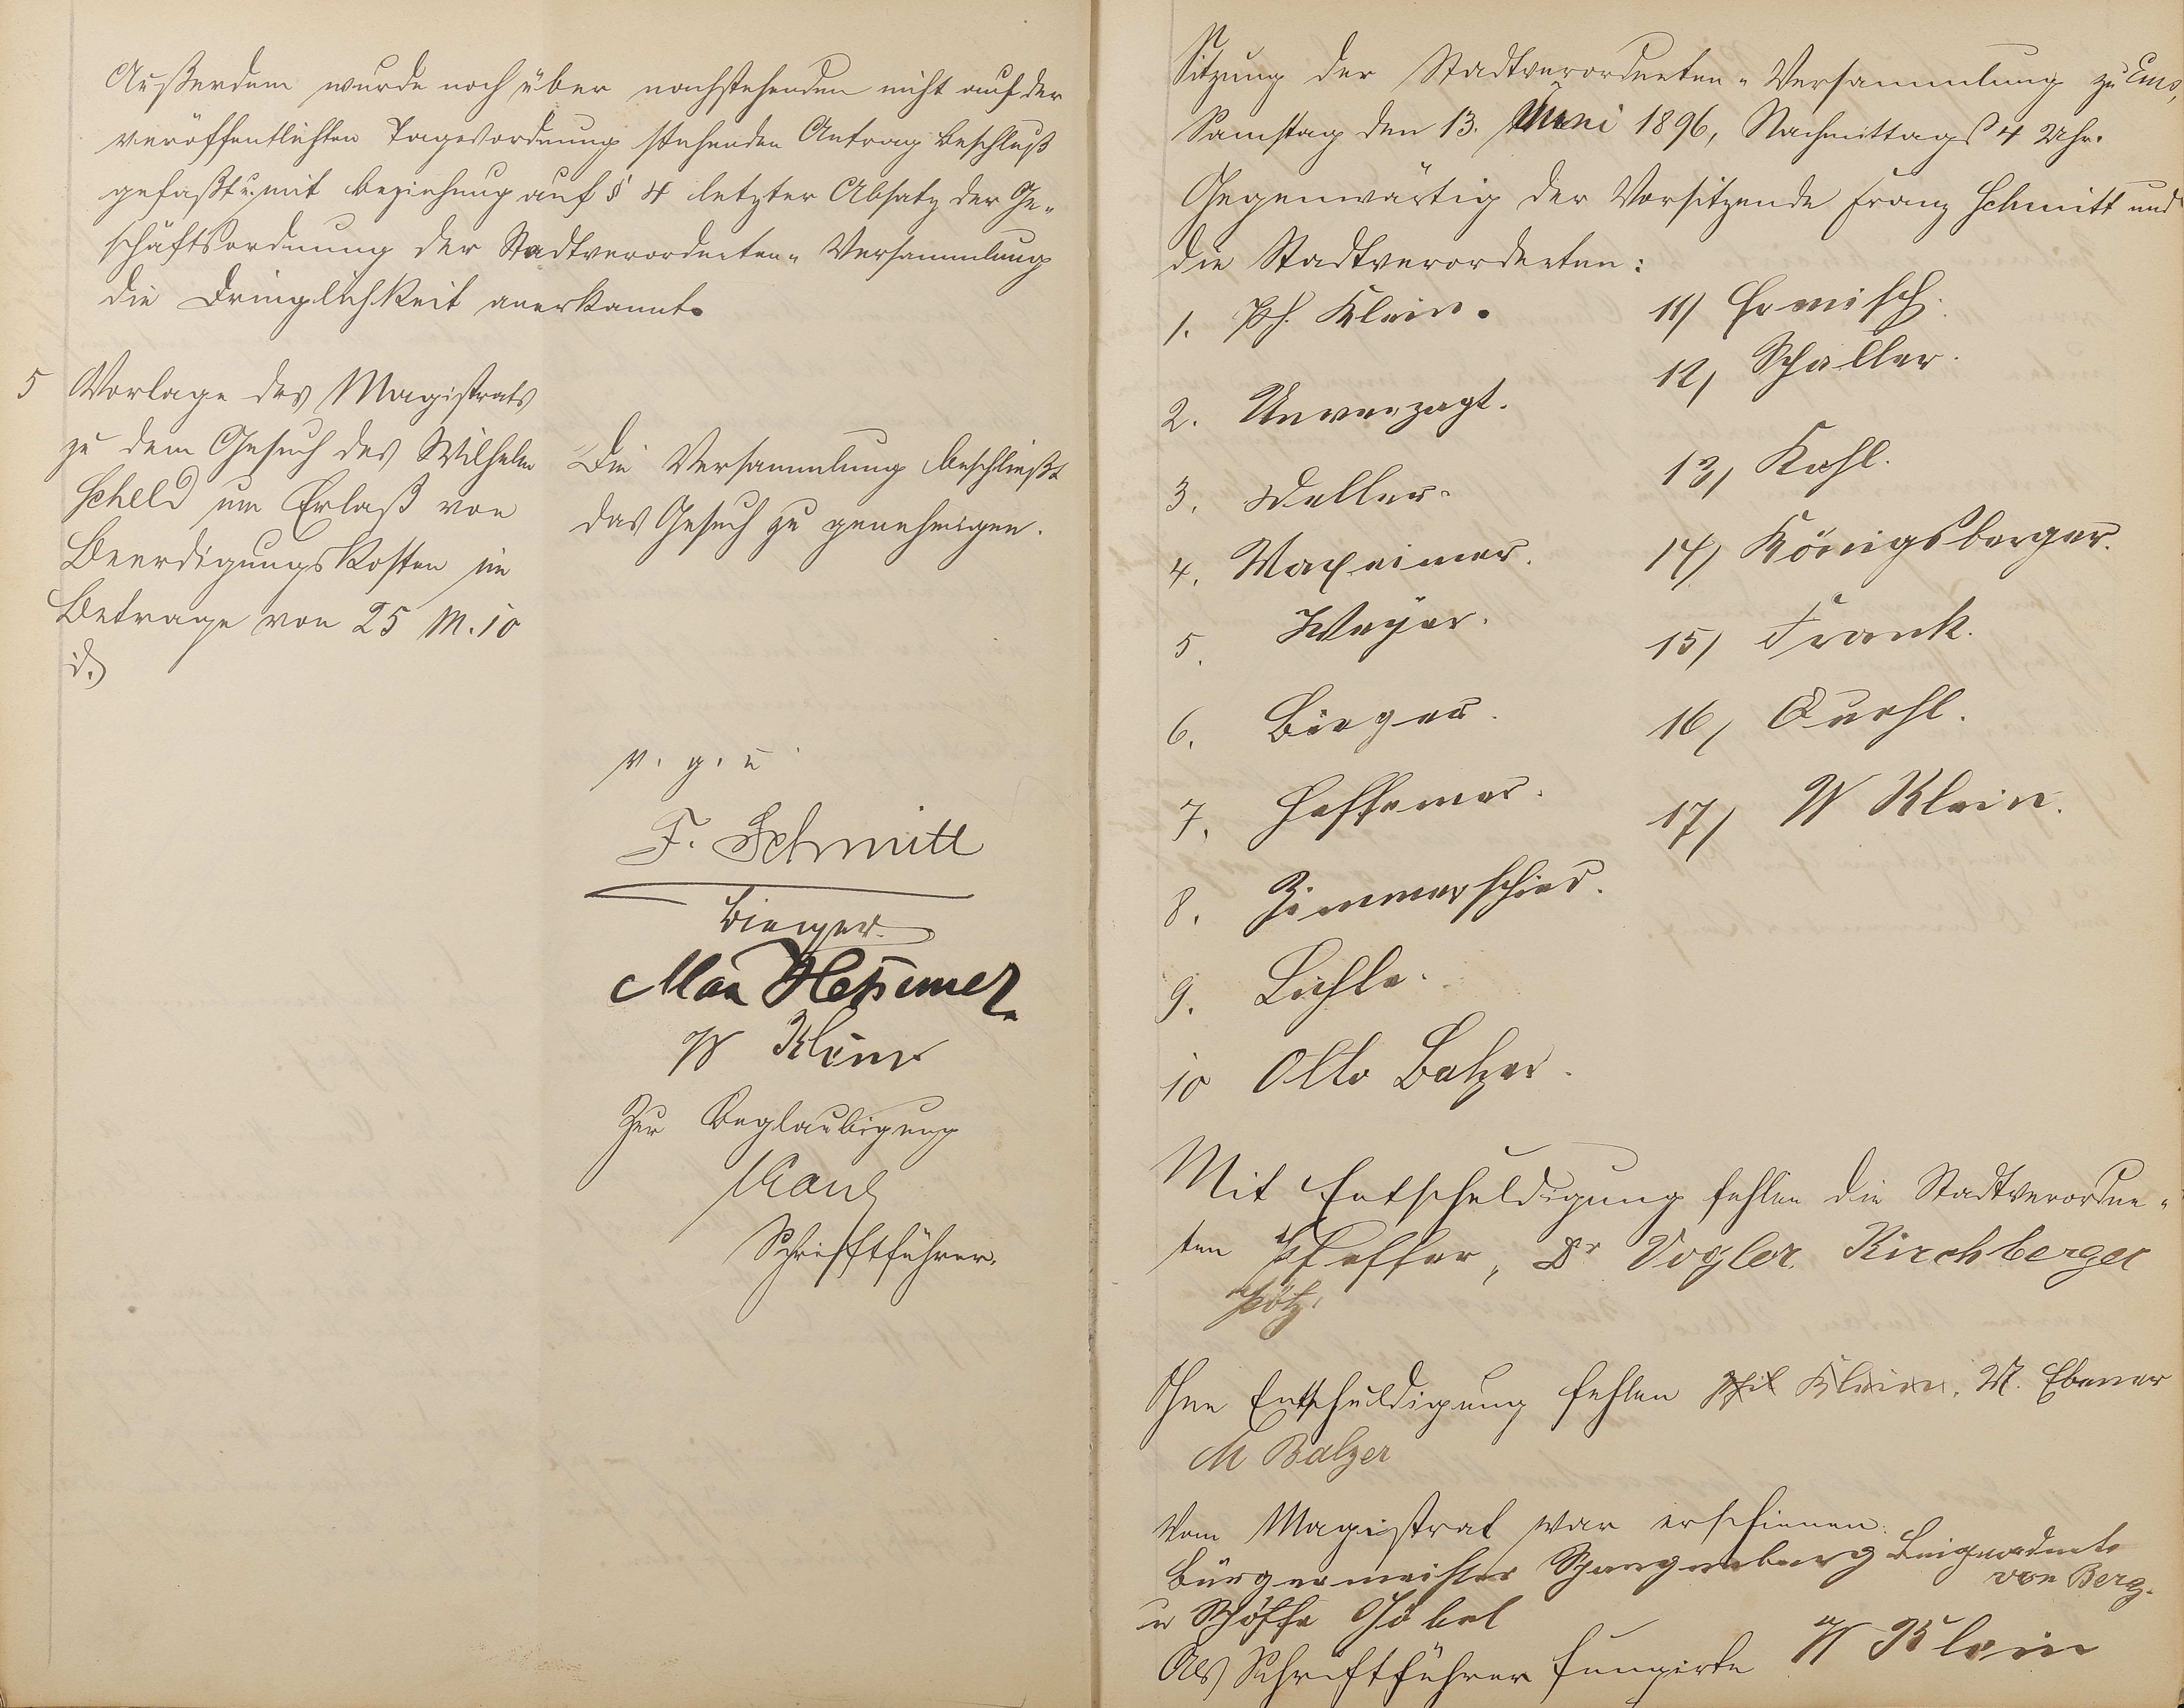 Außerdem wurde noch über nachstehenden nicht auf der
veröffentlichten Tagesordnung stehenden Antrag Beschluß
gefaßt u. mit Beziehung auf § 4 letzter Absatz der Ge-
schäftsordnung der Stadtverordneten-Versammlung
die Dringlichkeit anerkannt.
5 Vorlage des Magistrats
zu dem Gesuch des Wilhelm
Scheld um Erlaß von
Beerdigungskosten im
Betrage von 25 M. 10
d.
Die Versammlung beschließt
das Gesuch zu genehmigen.
v. g. u
F. Schmitt
Bieger
Max Heßemer
W Klein
Zur Beglaubigung
Schriftführer.
Sitzung der Stadtverordneten-Versammlung zu Ems,
Samstag den 13. Juni 1896, Nachmittags 4 Uhr.
Gegenwärtig der Vorsitzende Franz Schmitt und
die Stadtverordneten:
1. Ph. Klein.
2. Unverzagt.
3. Weller.
4. Maxeiner.
5. Weyer.
6. Bieger.
7. Heßemer.
8. Zimmerschied.
9. Lichle.
10 Otto Balzer.
11) Hermisch.
12) Schaller.
13) Kohl.
14) Königsberger.
15) Frank.
16) Quehl.
17) W Klein.
Mit Entschuldigung fehlen die Stadtverordne-
ten Pfeffer, Dr Vogler Kirchberger
Pötz.
Ohne Entschuldigung fehlen Phil Klein, M. Ebener
M Balzer
Vom Magistrat war erschienen.
Bürgermeister Spangenberg Beigeordnete
von Berg.
u Schöffe Göbel
Als Schriftführer fungirte W Klein